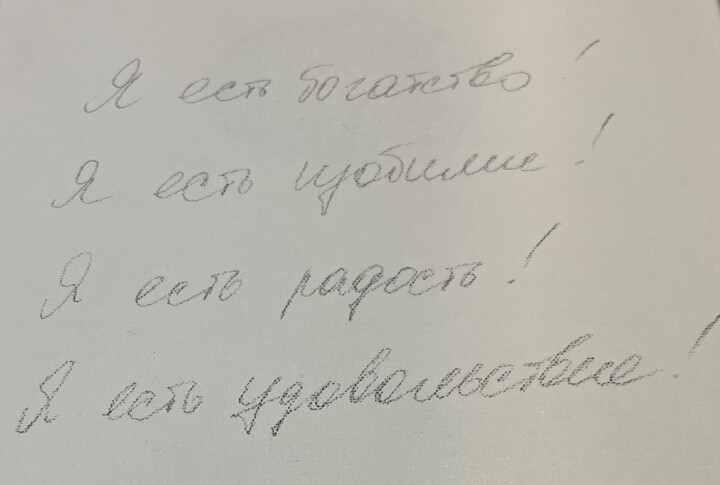 Я есть богатство!
Я есть изобилие!
Я есть радость!
Я есть удовольствие!